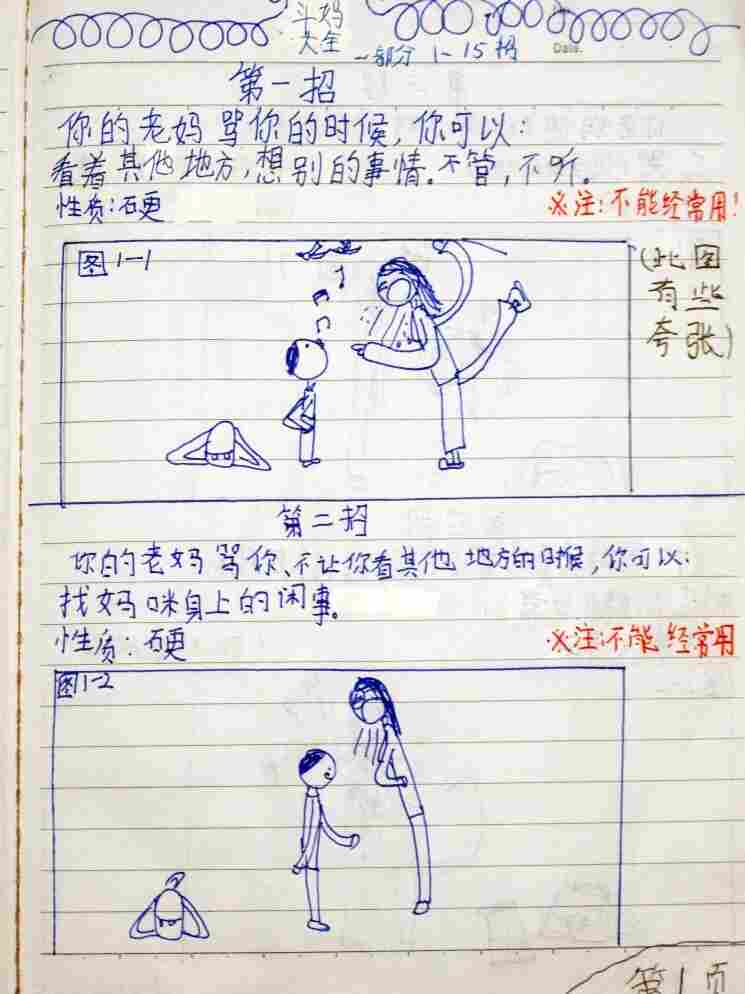 斗妈
大全
一部分 1-15招
Date.
第一招
你的老妈骂你的时候,你可以:
看着其他地方,想别的事情。不管,不听。
性质:硬
※注:不能经常用!
图1-1
(此图
有些
夸张)
第二招
你的老妈骂你、不让你看其他地方的时候,你可以:
找妈咪身上的闲事。
性质:硬
※注:不能经常用
图1-2
第1页